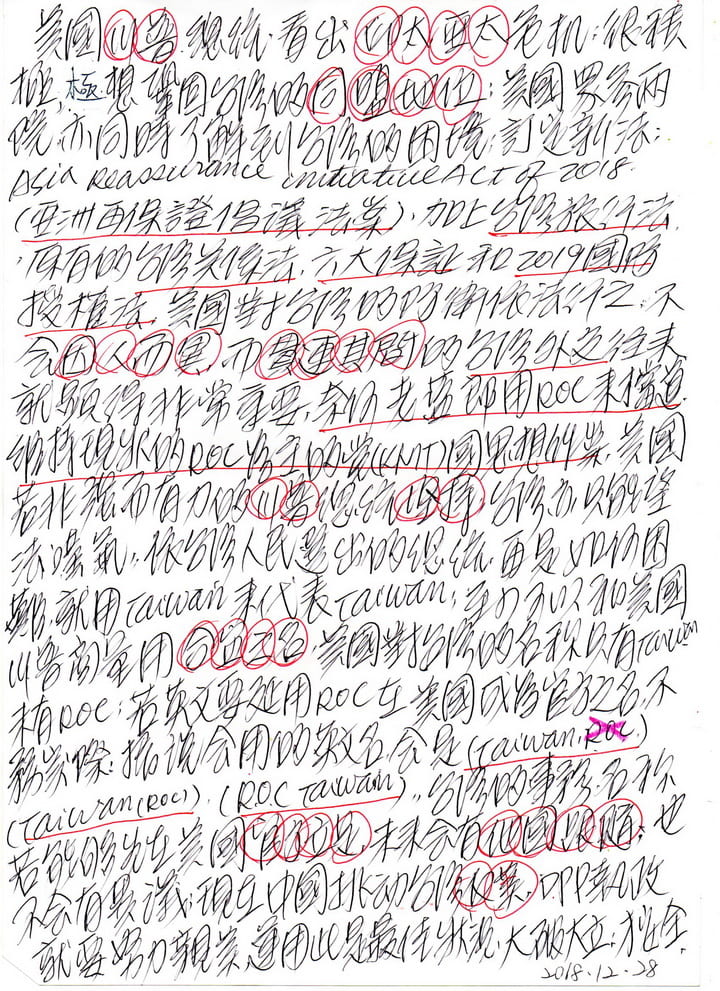 美國川普總統,看出印太亞太危机;很積
極,極想鞏固台灣的同盟地位;美國眾參兩
院,亦同時了解到台灣的困境;訂定新法:
Asia Reassurance initiative Act of 2018.
(亞洲再保證倡議法案),加上台灣旅行法,
原有的台灣關係法,六大保証和2019國防
授權法,美國對台灣的防衛依法行之,不
会因人而異,而
的台灣外交往來
就顯得非常重要,奈何老藍卻用ROC來擋道,
維持現狀的ROC為主的黨(KMT)國思想作業,美國
若非強而有力的川普總統
台灣亦只能望
法嘆氣,依台灣人民選出的總統,再是如何困
難,就用Taiwan來代表Taiwan;
可以和美國
川普商量用台灣正名,美國對台灣的名称只有Taiwan
未有ROC;若英文要延用ROC在美國成為官方名,不
務實際;據說会用的英文名会是(Taiwan,ROC)
(Taiwan(ROC)),(ROC Taiwan),台灣的事務名称
若能夠先在美國
未來会有他國跟隨;也
不会有異議;現在中國挑动台灣
,DPP執政
就要努力親美,運用此是最佳狀況,大破大立;
2018.12.28